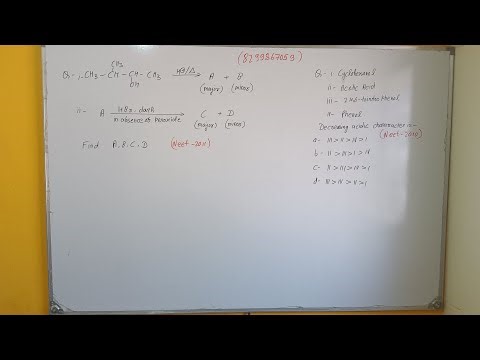 (8799867059)
Q1- i- CH3 - CH - CH - CH3 H⊕/Δ A + B
CH3
OH
(major) (minor)
ii- A HBr, dark C + D
in absence of Peroxide (major) (minor)
Find A, B, C, D (Neet - 2011)
Q2- i- Cyclohexanol
ii- Acetic Acid
iii- 2 4 6-trinitro Phenol
iv- Phenol
Decreasing acidic character is -
(Neet - 2010)
a- III > II > IV > I
b- II > III > I > IV
c- II > III > IV > I
d- III > IV > II > I